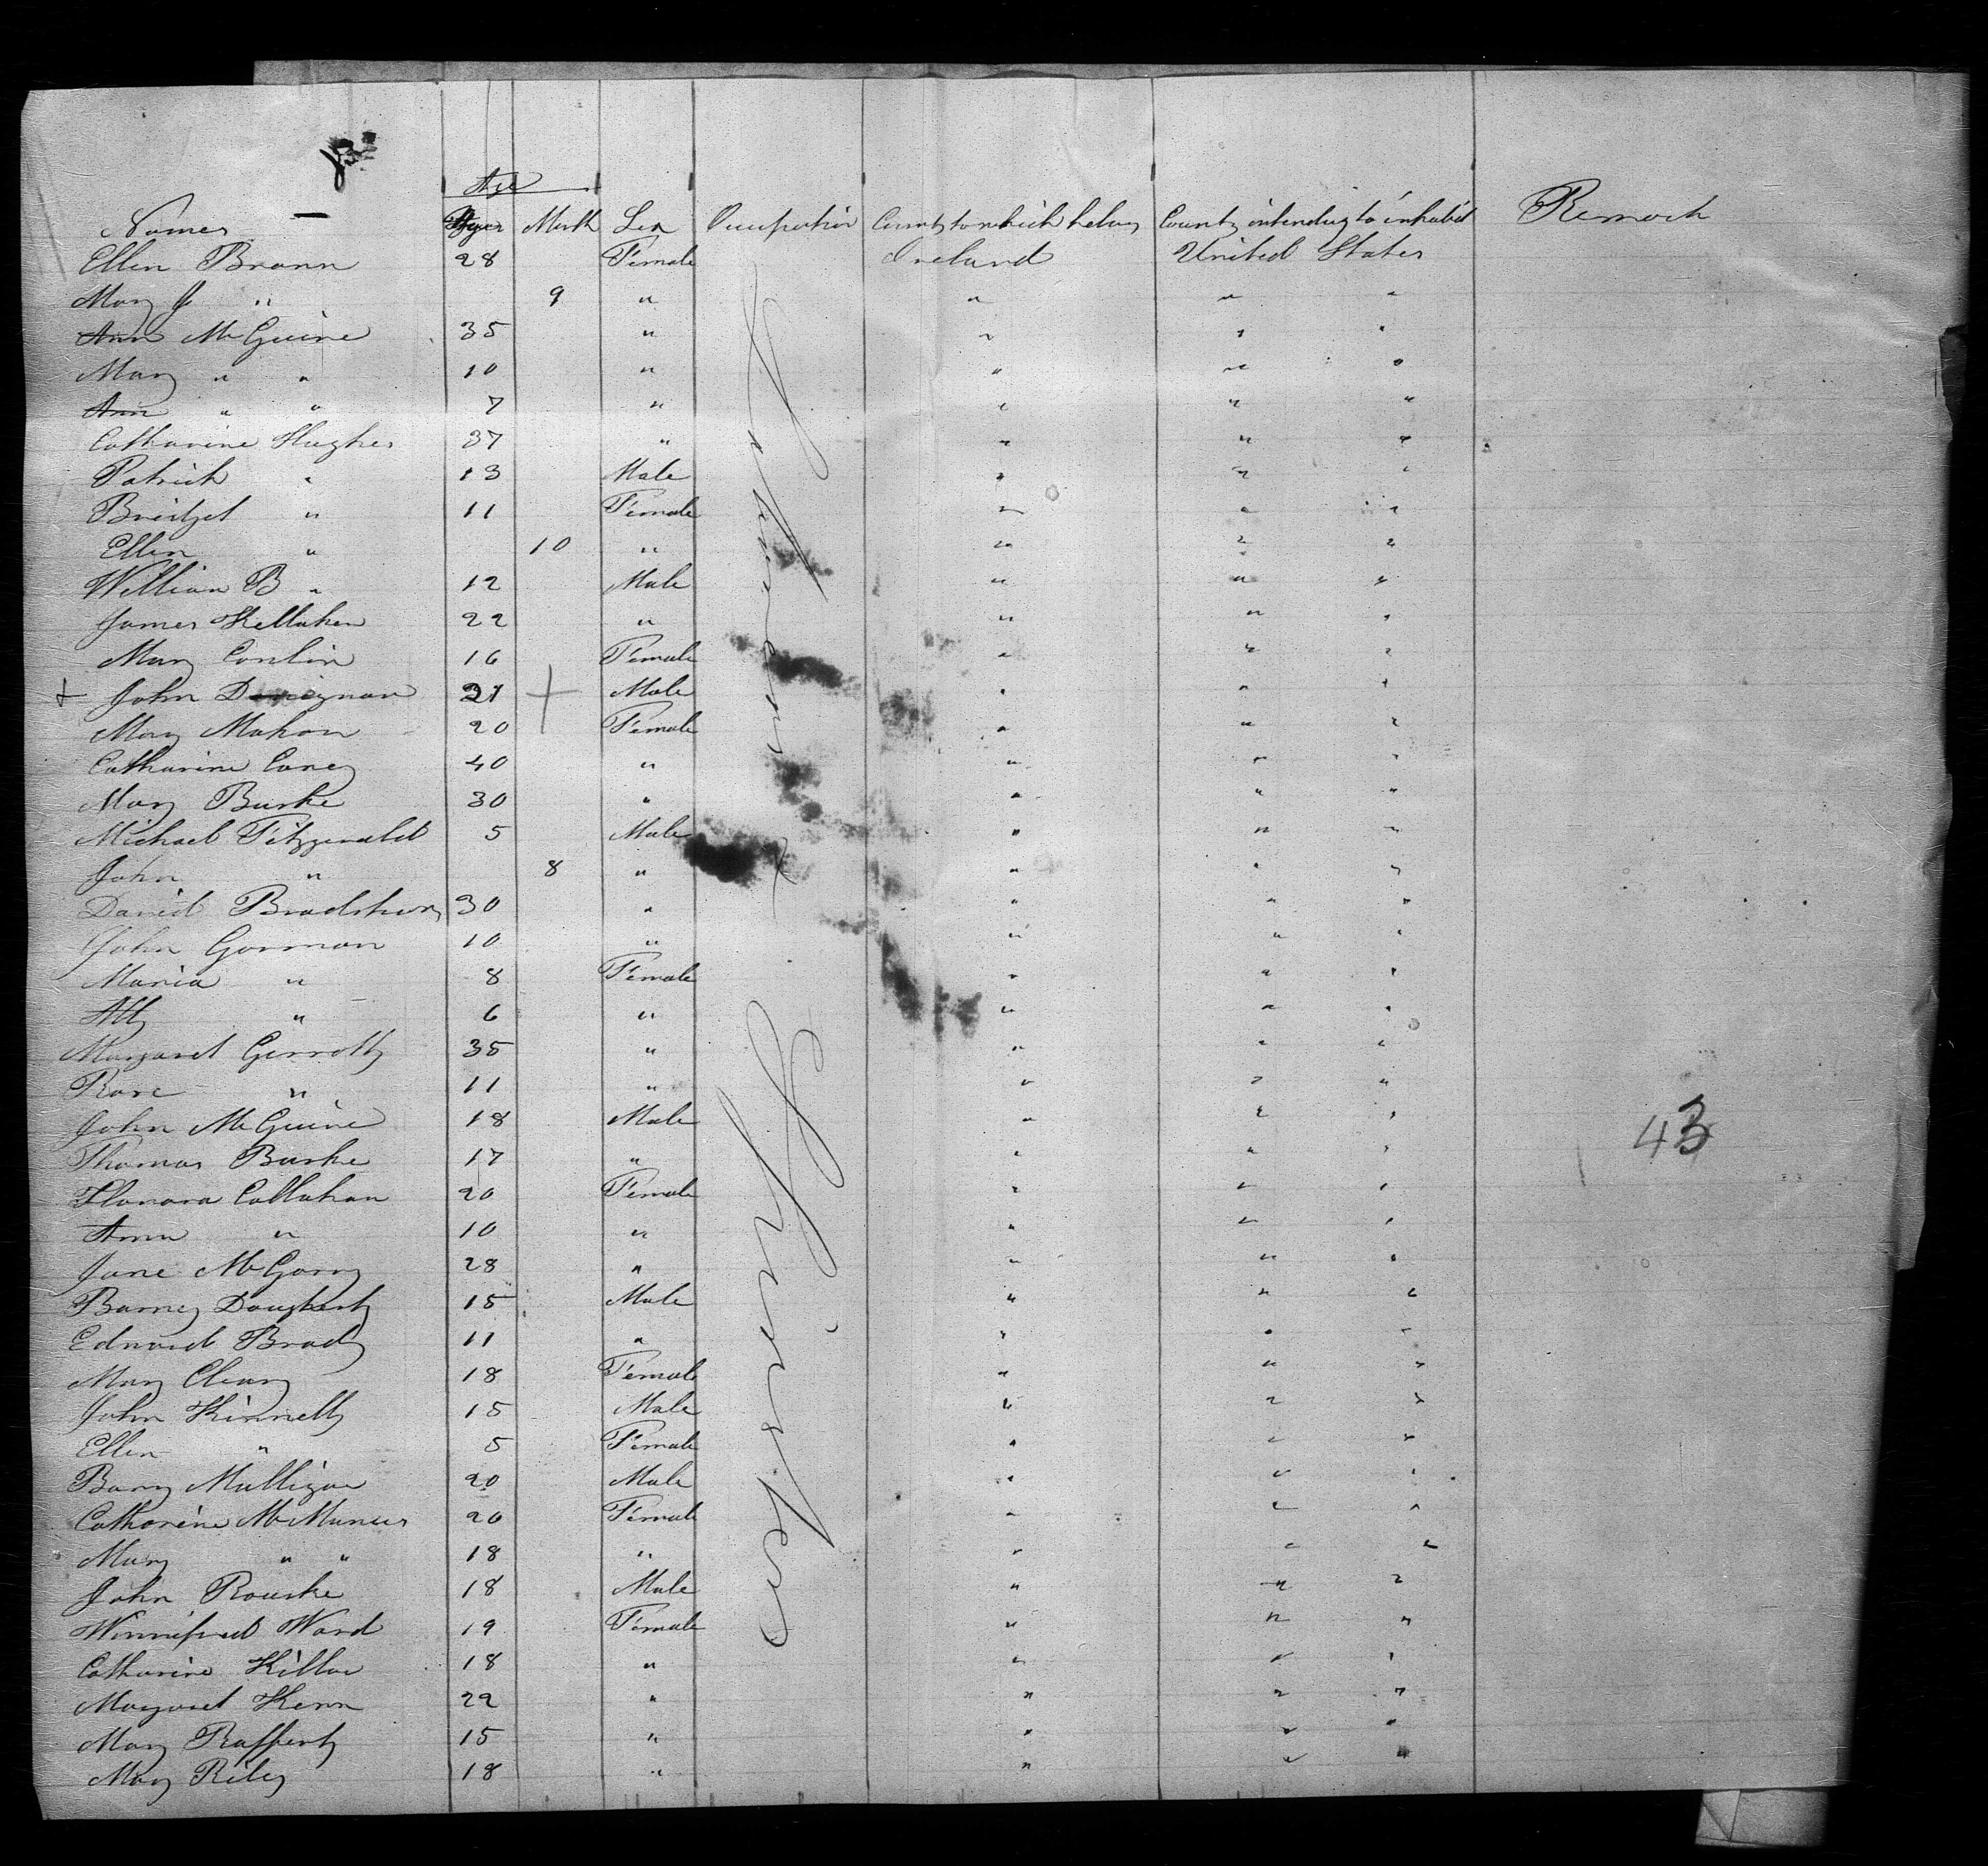 Age
Names Years Month Sex Occupation County to which belong County intending to inhabit Remark
Ellen Brann 28 Female Ireland United States
Mary J " 9 " " " "
Ann McGuire 35 " " " "
Mary " " 10 " " " "
Ann " " 7 " " " "
Catharine Hughes 37 " " " "
Patrick " 13 Male " " "
Bridget " 11 Female " " "
Ellen " 10 " " " "
William B " 12 Male " " "
James Kellaher 22 " " " "
Mary Conlin 16 Female " " "
+ John 21 + Male " " "
Mary Mahon 20 Female " " "
Catharine Coney 40 " " " "
Mary Burke 30 " " " "
Michael Fitzgerald 5 Male " " "
John " 8 " " " "
David Bradshaw 30 " " " "
John Gorman 10 " " " "
Maria " 8 Female " " "
" 6 " " " "
Margaret Gerrotty 35 " " " "
Rose " 11 " " " "
John McGuire 18 Male " " "
43
Thomas Burke 17 " " " "
Honora Callahan 20 Female " " "
Ann " 10 " " " "
Jane McGarry 28 " " " "
Barney Dougherty 15 Male " " "
Edward Brady 11 " " " "
Mary Cleary 18 Female " " "
John Kinnelly 15 Male " " "
Ellen " 5 Female " " "
Barry Mulligan 20 Male " " "
Catharine McManus 20 Female " " "
Mary " " 18 " " " "
John Rourke 18 Male " " "
Winnifred Ward 19 Female " " "
Catharine 18 " " " "
Margaret Kenn 22 " " " "
Mary Rafferty 15 " " " "
Mary Riley 18 " " " "